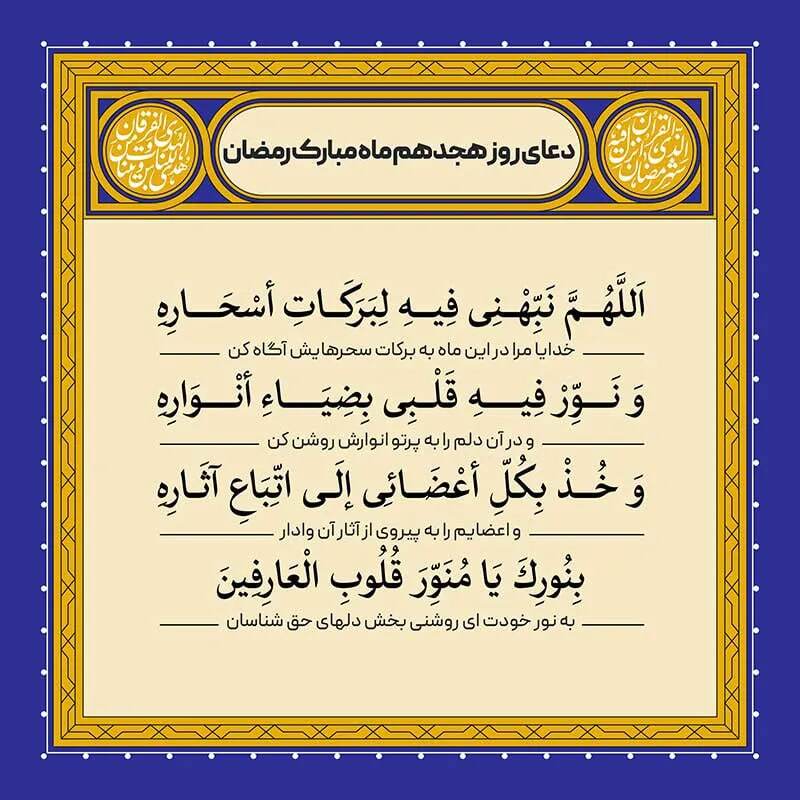 دعای روز هجدهم ماه مبارک رمضان
اَللَّهُمَّ نَبِّهْنِی فِیهِ لِبَرَکَاتِ أَسْحَارِهِ
خدایا مرا در این ماه به برکات سحرهایش آگاه کن
وَ نَوِّرْ فِیهِ قَلْبِی بِضِیَاءِ أَنْوَارِهِ
و در آن دلم را به پرتو انوارش روشن کن
وَ خُذْ بِکُلِّ أَعْضَائِی إِلَی اتِّبَاعِ آثَارِهِ
و اعضایم را به پیروی از آثار آن وادار
بِنُورِكَ یَا مُنَوِّرَ قُلُوبِ الْعَارِفِینَ
به نور خودت ای روشنی بخش دلهای حق شناسان